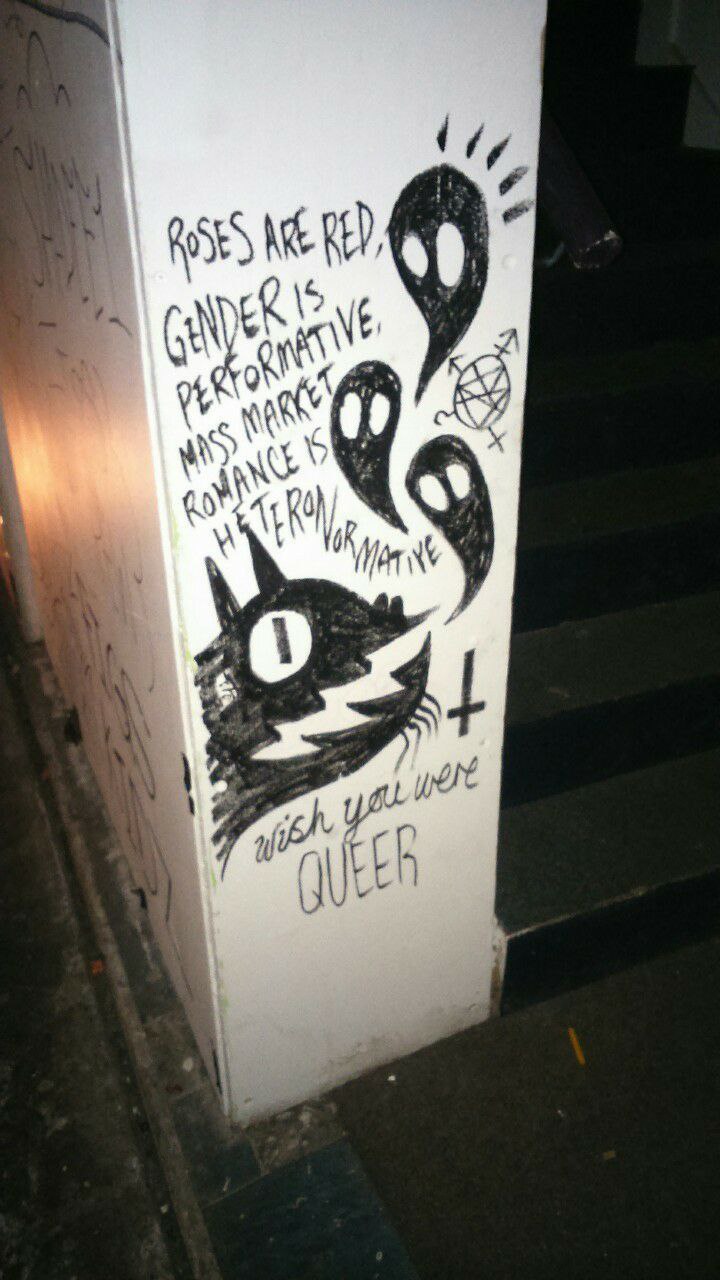 ROSES ARE RED,
GENDER IS
PERFORMATIVE,
MASS MARKET
ROMANCE IS
HETERONORMATIVE
wish you were
QUEER